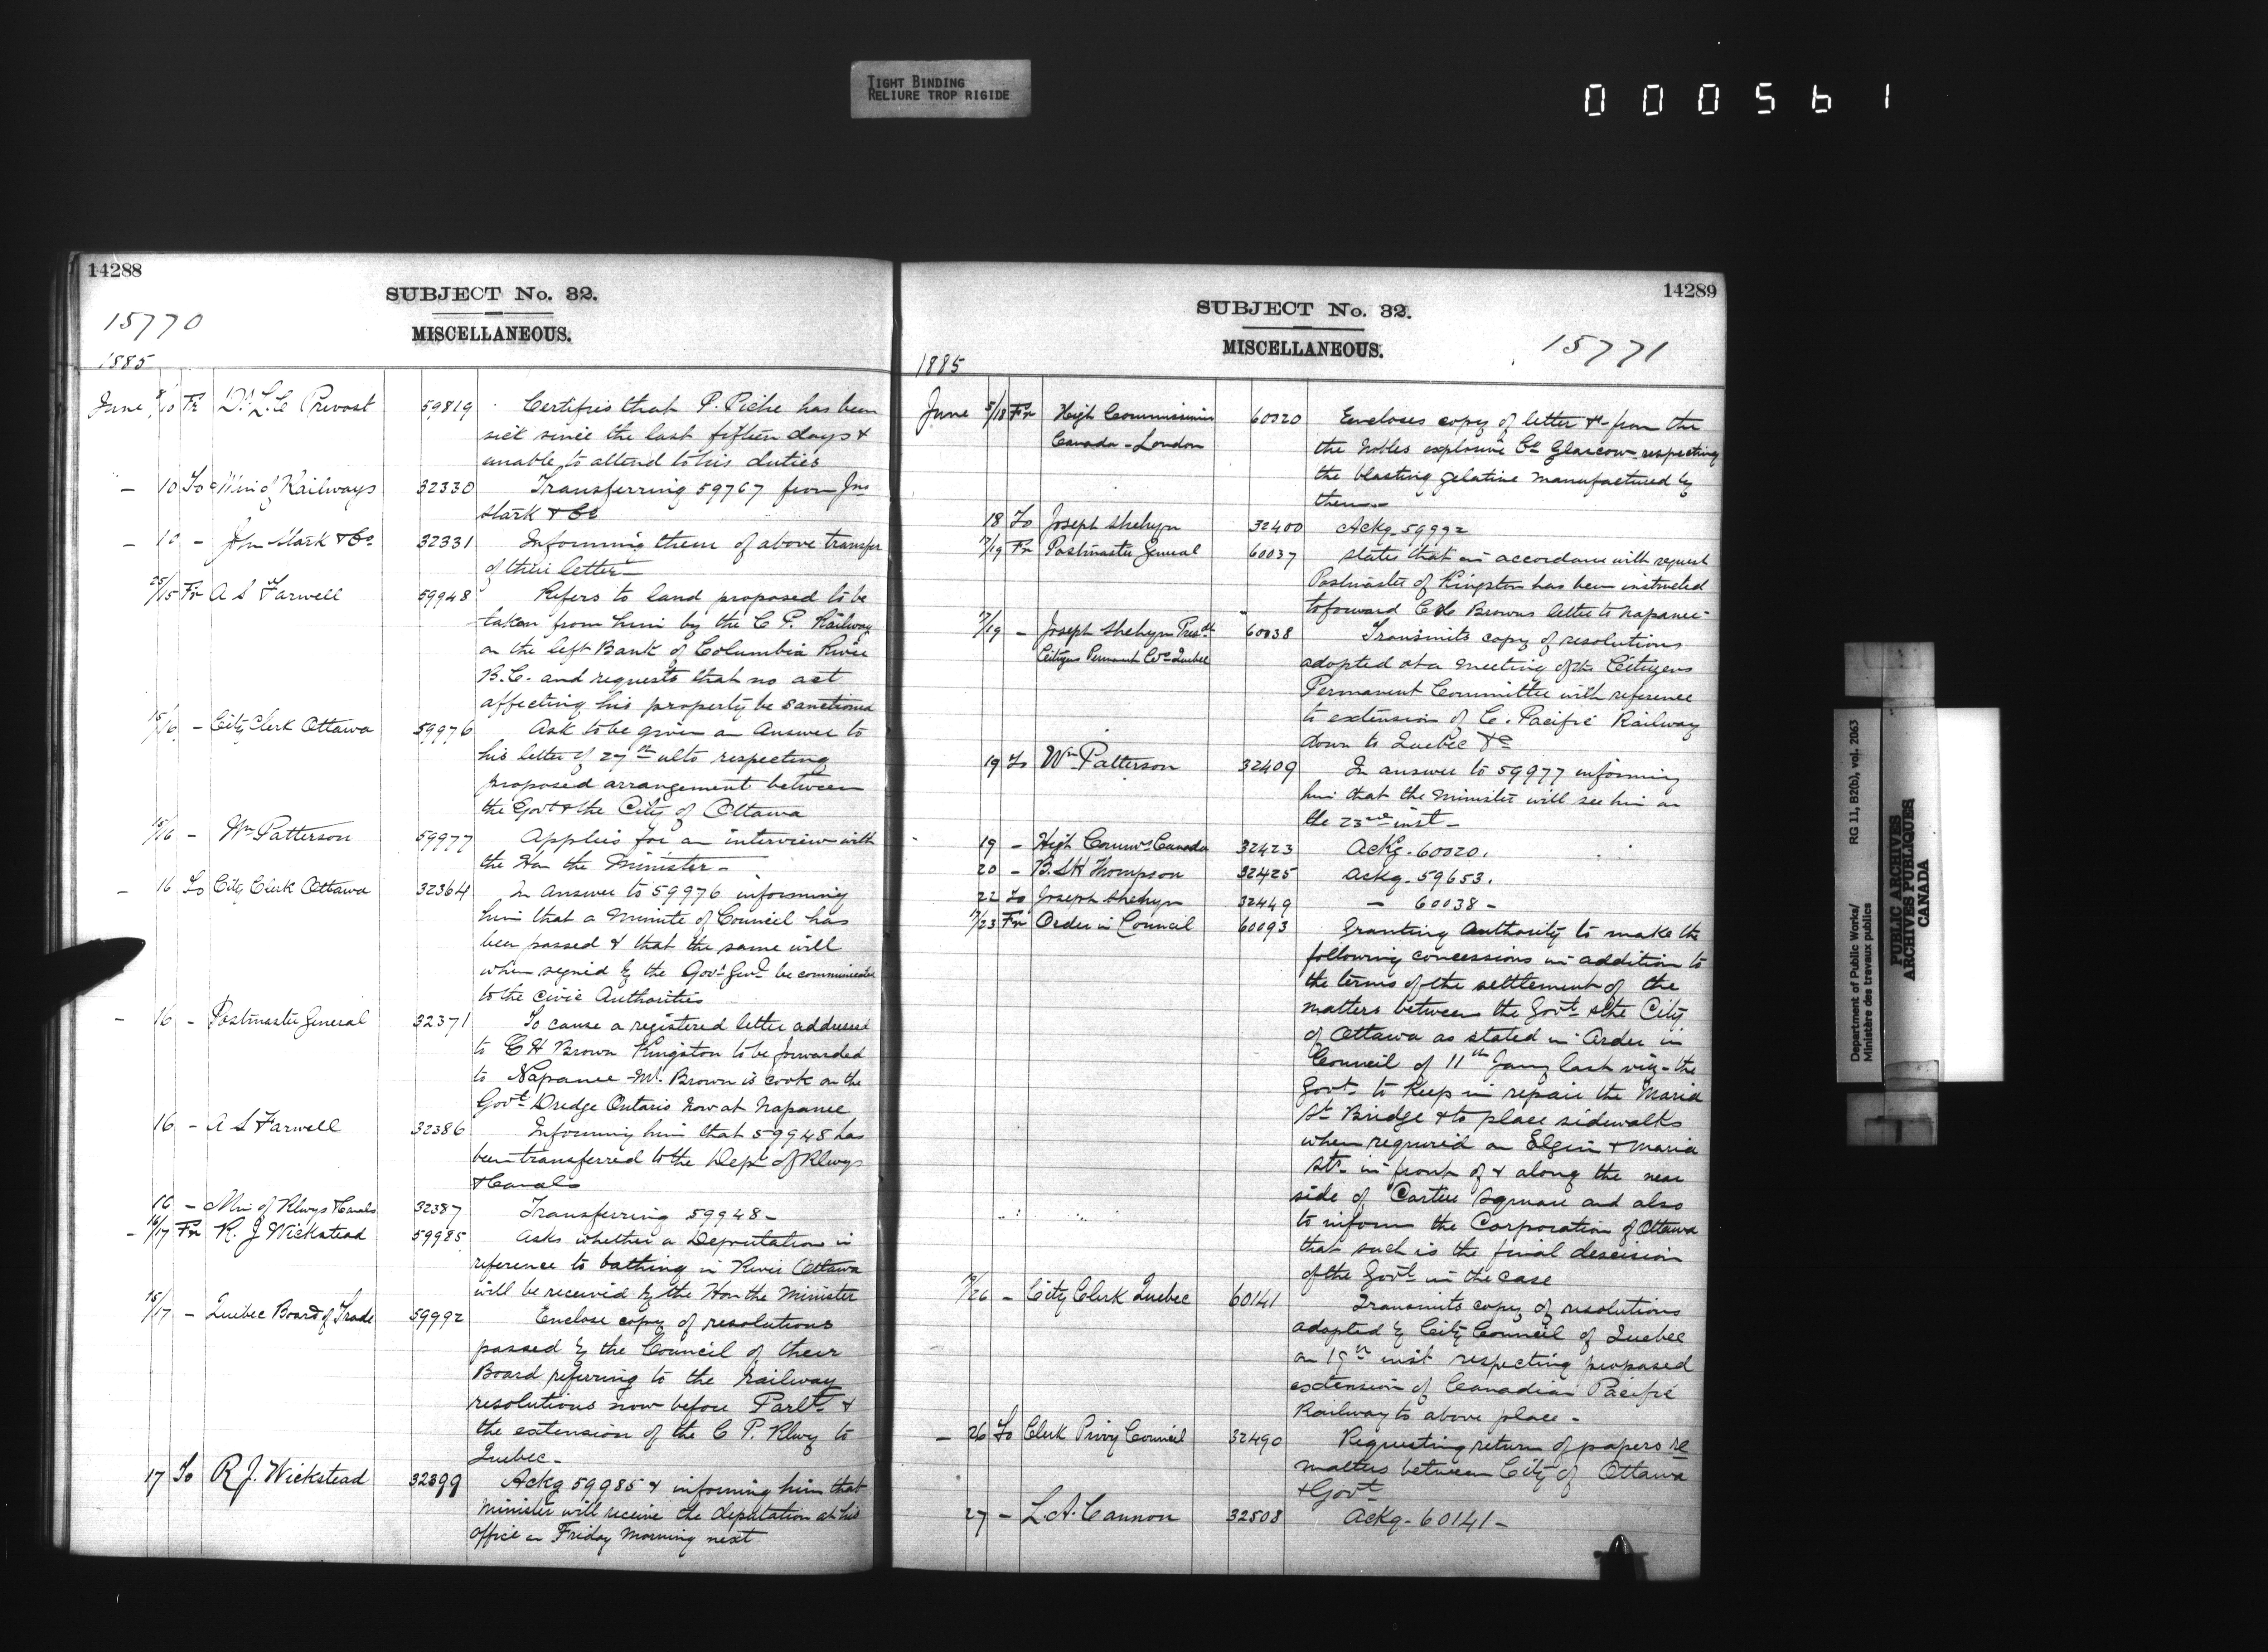 TIGHT BINDING
RELIURE TROP RIGIDE
000561
14288
SUBJECT No. 32.
15770
MISCELLANEOUS.
1885
June 8/10 Fr Dr L.C Prevost 59819 Certifies that P. Piche has been
sick since the last fifteen days &
unable to attend to his duties
— 10 To Min of Railways 32330 Transferring 59767 from Jno
Stark & Co
— 10 — John Stark & Co 32331 Informing them of above transfer
of their letter —
25/15 Fr A S Farwell 59948 Refers to land proposed to be
taken from him by the C P. Railway
on the left Bank of Columbia River
B.C. and requests that no act
affecting his property be sanctioned
15/16 — City Clerk Ottawa 59976 Ask to be given an Answer to
his letter of 27th ulto respecting
proposed arrangement between
the Govt & the City of Ottawa
15/16 — Wm Patterson 59977 Applies for an interview with
the Hon the Minister —
— 16 To City Clerk Ottawa 32364 In answer to 59976 informing
him that a Minute of Council has
been passed & that the same will
when signed by the Govr Genl be communicated
to the civic Authorities
— 16 — Postmaster General 32371 To cause a registered letter addressed
to C H Brown Kingston to be forwarded
to Napanee - Mr. Brown is cook on the
Govt Dredge Ontario now at Napanee
16 — A S Farwell 32386 Informing him that 59948 has
been transferred to the Dept of Rlwys
& Canals
16 — Min of Rlwys & Canals 32387 Transferring 59948 —
— 16/17 Fr R. J Wickstead 59985 Asks whether a Deputation in
reference to bathing in River Ottawa
will be received by the Hon the Minister
15/17 — Quebec Board of Trade 59992 Enclose copy of resolutions
passed by the Council of their
Board referring to the Railway
resolutions now before Parlt &
the extension of the C P. Rlwy to
Quebec —
17 To R J. Wickstead 32399 Ackg 59985 & informing him that
Minister will receive the deputation at his
office on Friday Morning next
14289
SUBJECT No. 32.
15771
MISCELLANEOUS.
1885
June 5/18 Fr High Commissioner 60020 Encloses copy of letter &c from the
Canada - London the Nobles explosive Co Glascow respecting
the blasting gelatine manufactured by
them —
18 To Joseph Shehyn 32400 Ackg 59992
17/19 Fr Postmaster General 60037 States that in accordance with request
Postmaster of Kingston has been instructed
to forward C H Browns letter to Napanee -
17/19 — Joseph Shehyn Presdt 60038 Transmits copy of resolutions
Citizens Permant Com Quebec adopted at a meeting of the Citizens
Permanent Committee with reference
to extension of C. Pacific Railway
down to Quebec &c
19 To Wm Patterson 32409 In answer to 59977 informing
him that the Minister will see him on
the 23rd inst —
19 — High Commr Canada 32423 Ackg. 60020.
20 — B.S H Thompson 32425 Ackg. 59653.
22 To Joseph Shehyn 32449 — 60038 —
17/23 Fr Order in Council 60093 Granting authority to make the
following concessions in addition to
the terms of the settlement of the
matters between the Govt & the City
of Ottawa as stated in Order in
Council of 11th Jany last viz - the
Govt to keep in repair the Maria
St Bridge & to place sidewalks
when required on Elgin & Maria
Sts in front of & along the near
side of Cartier Square and also
to inform the Corporation of Ottawa
that such is the final descision
of the Govt in the case
City Clerk Quebec 60141 Transmits copy of resolutions
adopted by City Council of Quebec
on 19th inst respecting proposed
extension of Canadian Pacific
Railway to above place —
— 26 To Clerk Privy Council 32490 Requesting return of papers re
matters between City of Ottawa
& Govt
27 — L.A. Cannon 32508 Ackg. 60141 —
Department of Public Works/ RG 11, B2(b), vol. 2063
Ministère des travaux publics
PUBLIC ARCHIVES
ARCHIVES PUBLIQUES
CANADA